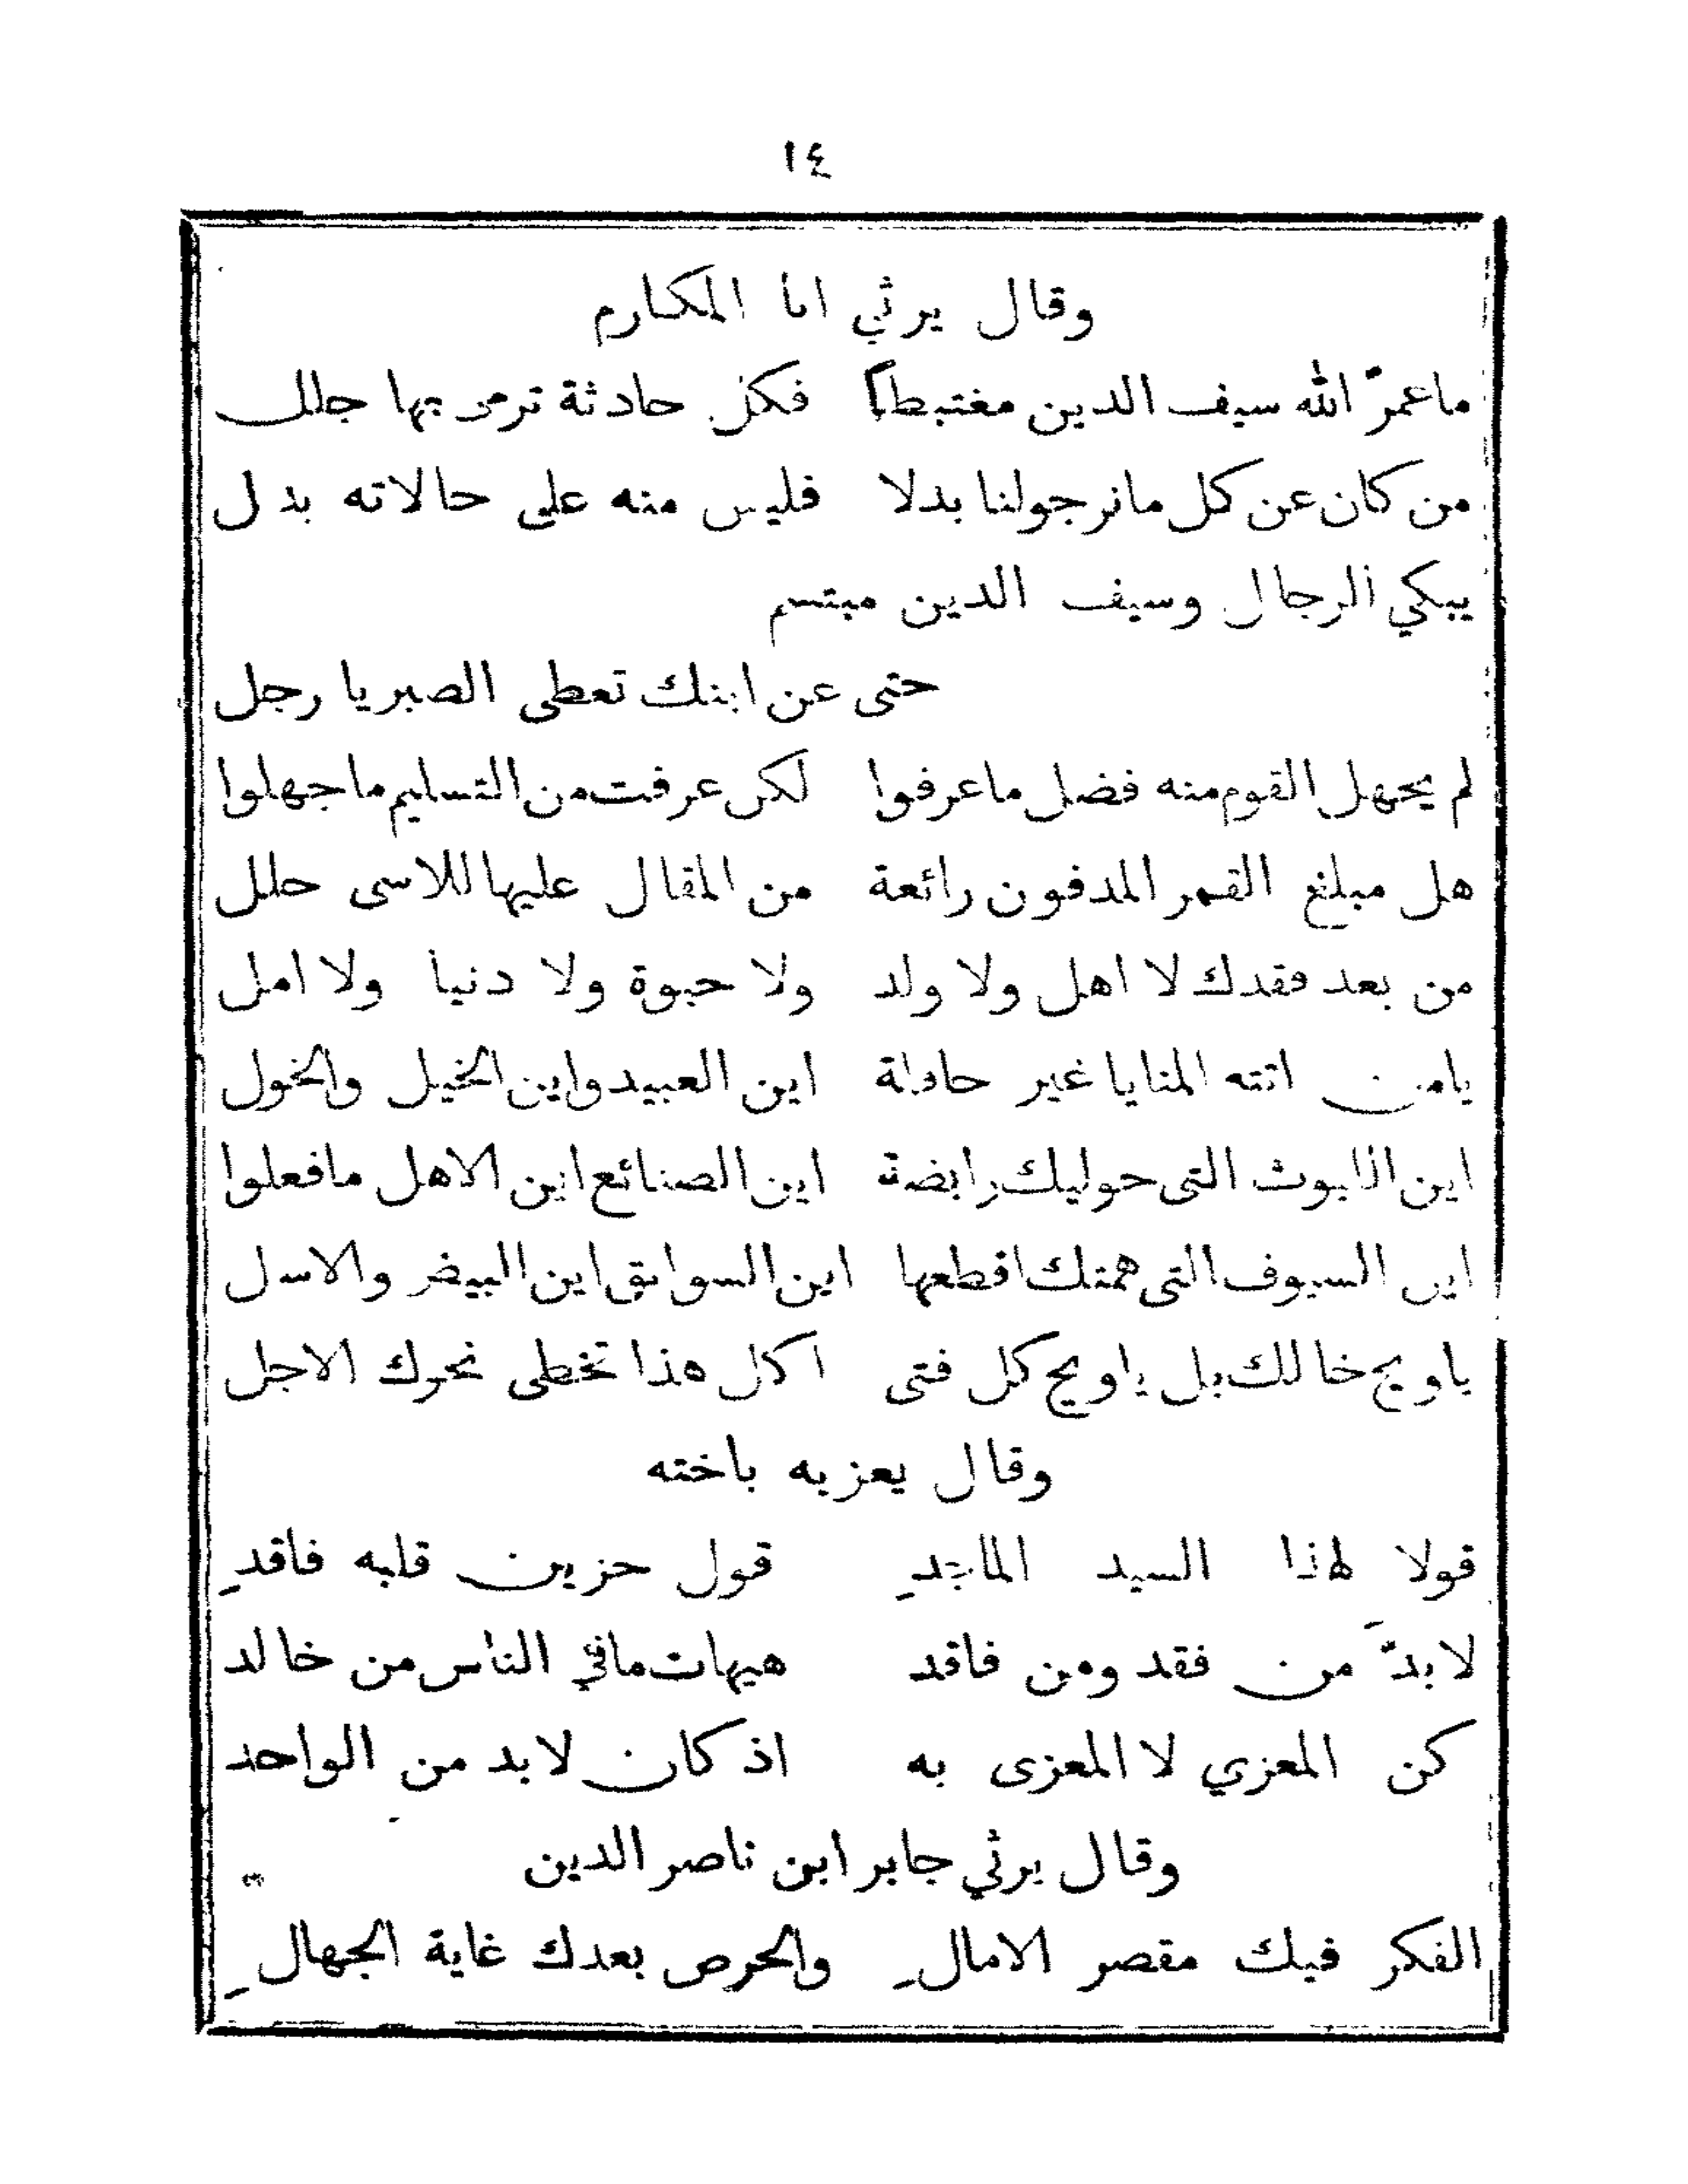 ١٤
وقال يرثي ابا المكارم
ماعمرّ الله سيف الدين مغتبطاً فكل حادثة ترمى بها جلل
من كان عن كل مانرجولنا بدلا فليس منه على حالاته بدل
يبكي الرجال وسيف الدين مبتسم
حتى عن ابنك تعطى الصبر يا رجل
لم يجهل القوم منه فضل ماعرفوا لكن عرفت من التسليم ماجهلوا
هل مبلغ القمر المدفون رائعة من المقال عليها للاسى حلل
من بعد فقدك لا اهل ولا ولد ولا حيوة ولا دنيا ولا امل
يامن اتته المنايا غير حافلة اين العبيد واين الخيل والخول
اين الليوث التى حوليك رابضة اين الصنائع اين الاهل مافعلوا
اين السيوف التى همتك اقطعها اين السوابق اين البيض والاسل
ياويح خالك بل ياويح كل فتى اكل هذا تخطى نحوك الاجل
وقال يعزيه باخته
قولا لهذا السيد الماجدِ قول حزين قلبه فاقدِ
لابدَّ من فقد ومن فاقد هيهات مافي الناس من خالد
كن المعزي لا المعزى به اذ كان لابد من الواحد
وقال يرثي جابر ابن ناصر الدين
الفكر فيك مقصر الامالِ والحرص بعدك غاية الجهالِ